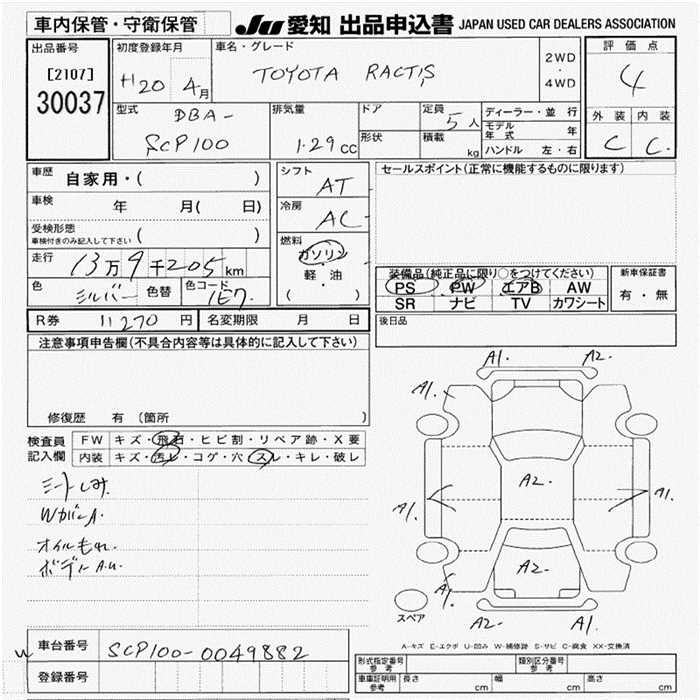 車内保管・守衛保管
JU 愛知 出品申込書 JAPAN USED CAR DEALERS ASSOCIATION
出品番号
[2107]
30037
初度登録年月
H20 4月
車名・グレード
TOYOTA RACTIS
2WD
・
4WD
評価点
4
外装 内装
C C
型式
DBA-
SCP100
排気量
1.29cc
ドア
形状
定員
5人
積載
kg
ディーラー・並行
モデル年式 年
ハンドル 左・右
車歴
自家用・( )
車検
年 月( 日)
受検形態
車検付きのみ記入して下さい ( )
走行
13万9千205km
色
シルバー
色替
色コード
1E7
R券 11270 円
名変期限 月 日
シフト
AT
冷房
AC
燃料
ガソリン
軽・油
( )
セールスポイント(正常に機能するものに限ります)
装備品(純正品に限り○をつけてください)
PS PW エアB AW
SR ナビ TV カワシート
新車保証書
有・無
後日品
注意事項申告欄(不具合内容等は具体的に記入して下さい)
修復歴 有(箇所 )
検査員
記入欄
FW キズ・飛石・ヒビ割・リペア跡・X要
内装 キズ・汚レ・コゲ・穴・スレ・キレ・破レ
シートしみ.
WカバーA.
オイルもれ.
ボデーA.U
A1. A2.
A1. A1.
A2.
A1. A1.
A2.
A1.
A2. A1.
スペア
A-キズ E-エクボ U-凹み W-補修跡 S-サビ C-腐食 XX-交換済
W
車台番号
SCP100-0049882
登録番号
形式指定番号
参考
類別区分番号
参考
車庫証明用
参考
長さ cm
幅 cm
高さ cm